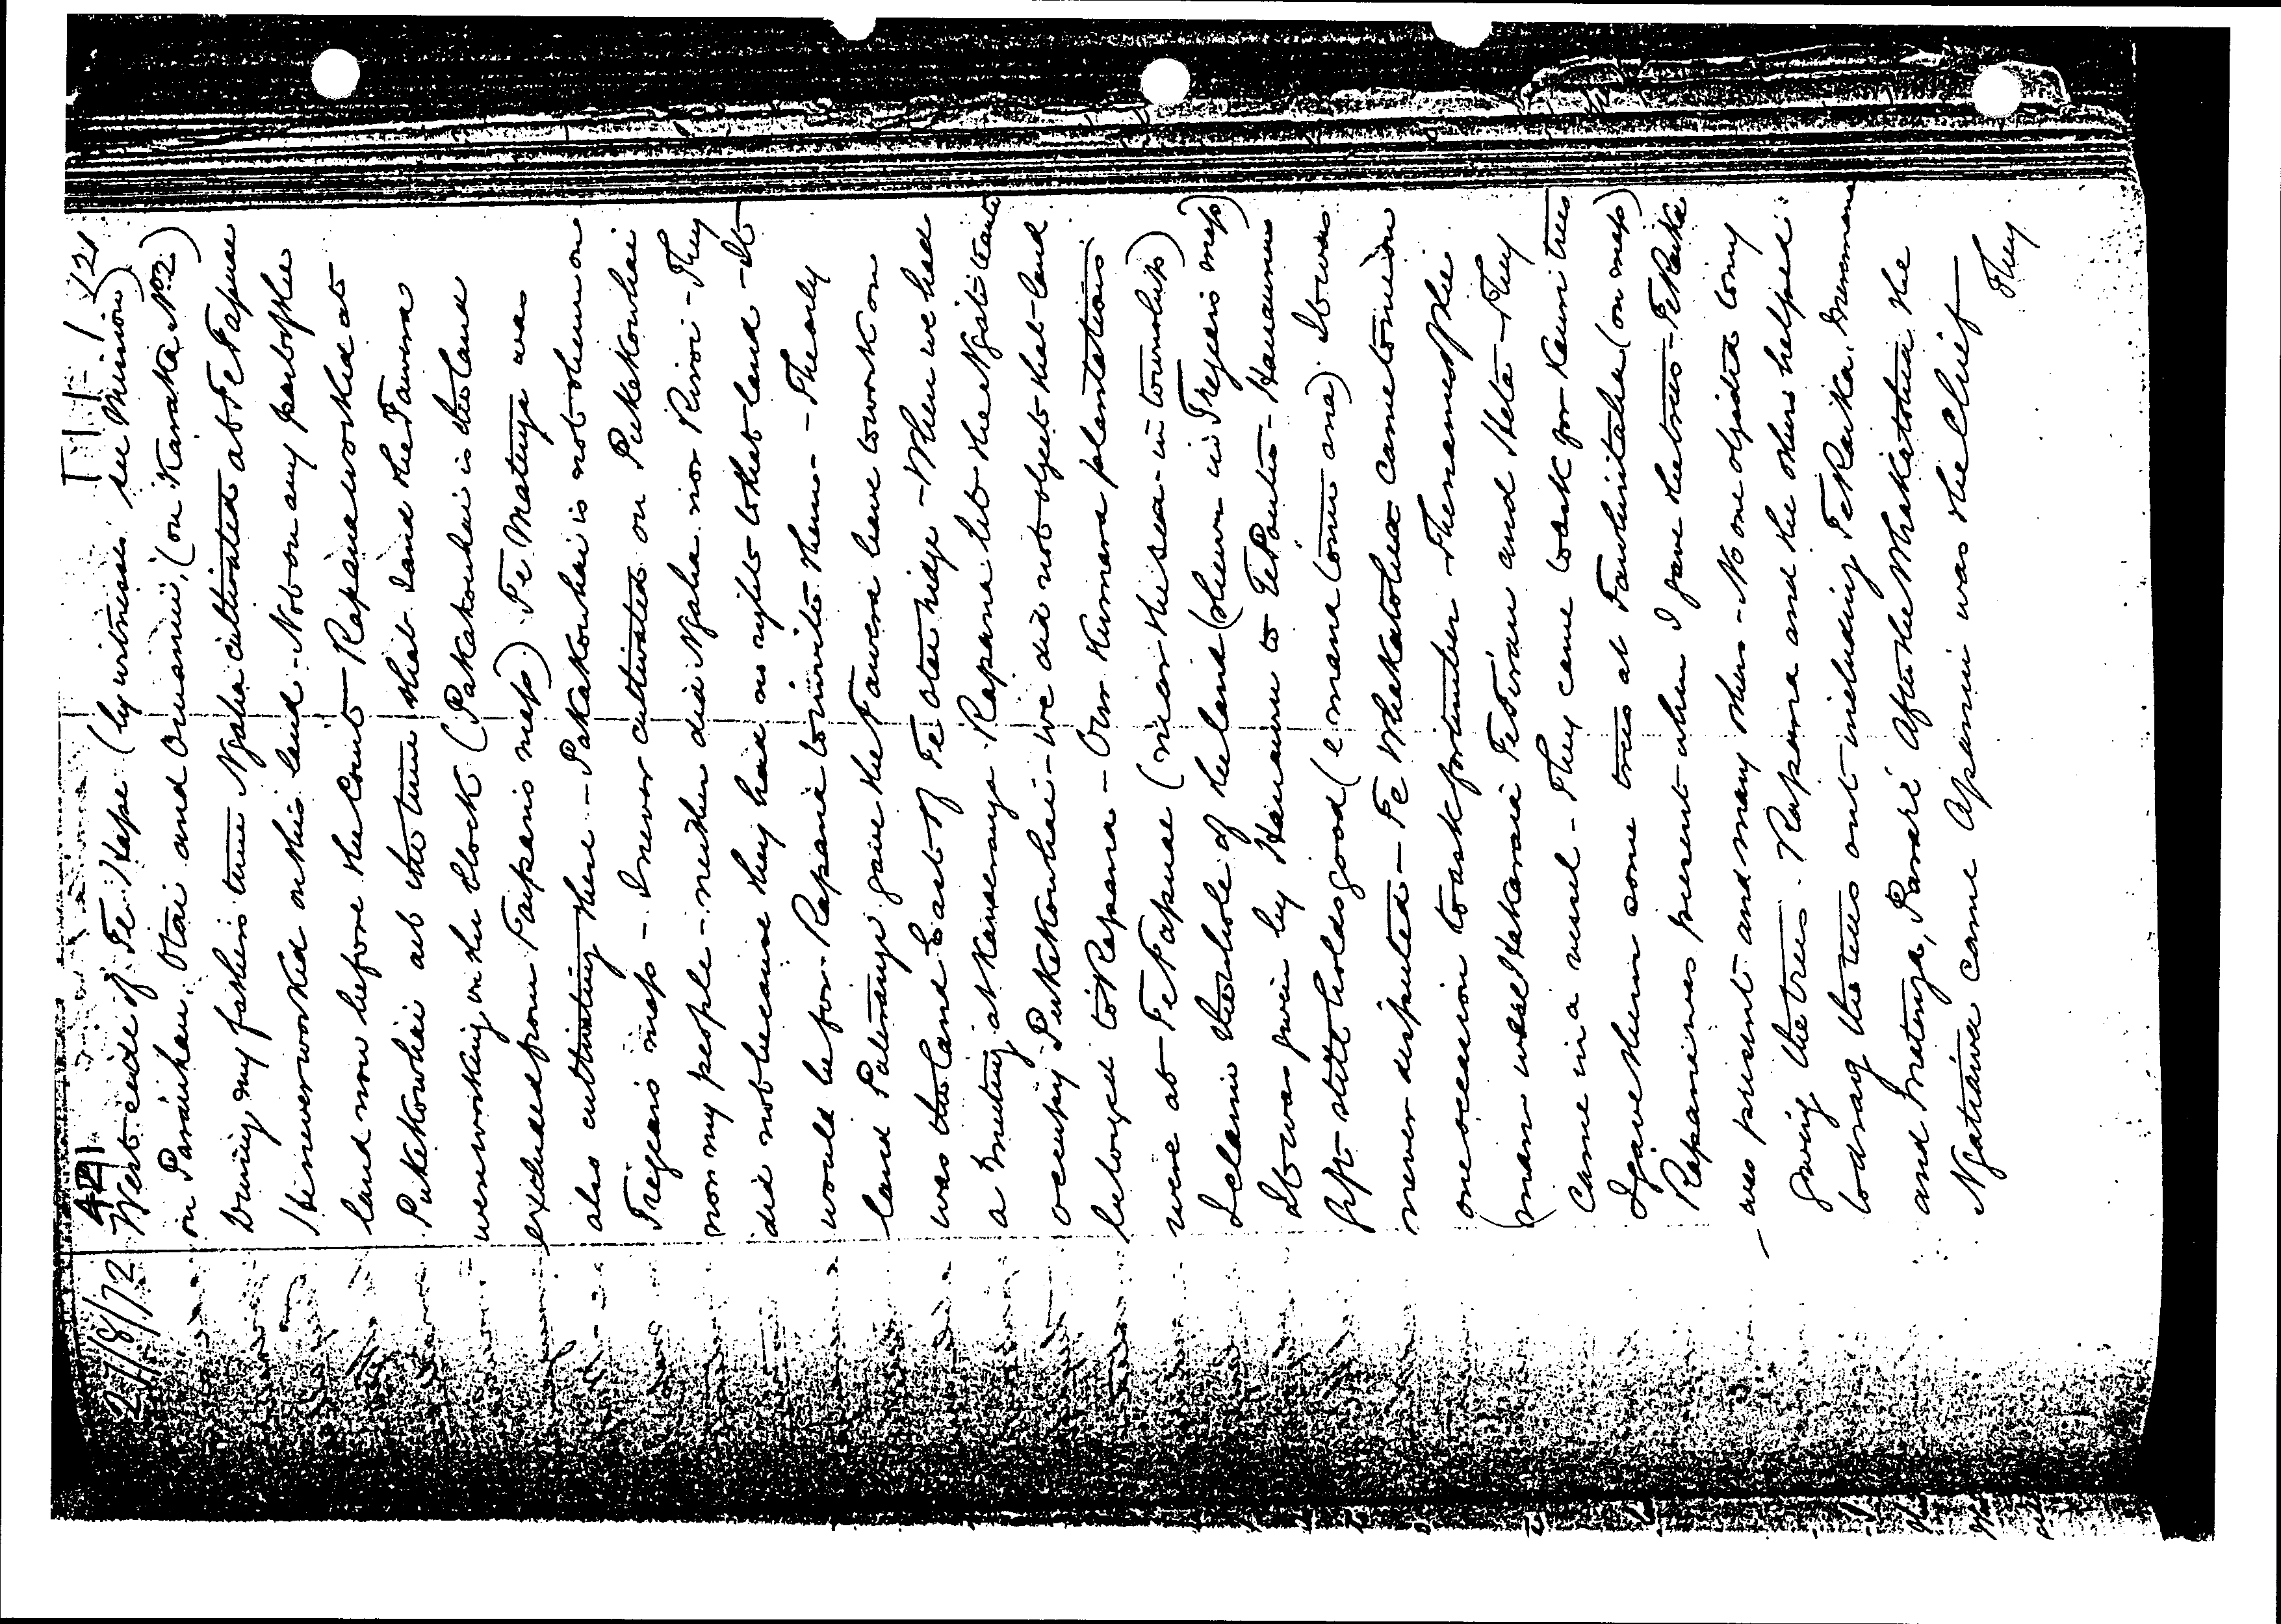 27/8/72
121
West side of Te Hape (by witnesses see Mission)
on Parauhau. Otai and Omanui, (on Karaka No 2)
During my fathers time Ngaha cultivated at Te Tapuae
He never worked on this land - Not on any part of the
land now before the Court - Rapana worked at
Pukekowhai at the time that I and the Tawera
were working on the block (Pukekowhai is the land
excluded from Taipari's map) Te Matunga was
also cultivating there - Pukekowhai is not shewn on
Tregear's map - I never cultivated on Pukekowhai
nor my people - neither did Ngaha nor Riwai - They
did not because they had no right to that land - It
would be for Rapana to invite them - The only
land gave the Tawera leave to work on
was the land East of Te Otau ridge - When we had
a meeting at Rapana let the
occupy Pukekowhai - we did not object that land
belonged to Rapana - Our Kumara plantations
were at Te Tapuae (near the sea - in township)
I claim the whole of the land (shewn in Tregear's map)
It was given by Hauauru to Te Pautu - Hauauru's
gift still holds good (e mana tonu ana) It was
never disputed - Te Whakatohea came to me on
one occasion to ask for timber - The names of the
men were Hakaraia Te and Heta - They
came in a vessel - They came to ask for Kauri trees
I gave them some trees at Tawhitirahi (on map)
Rapana was present when I gave the trees - Te Raika
was present and many others - No one objected to my
giving the trees. Rapana and the others helped
to drag the trees out including Te Raika,
and Matunga, Parare After the Whakatohea the
Ngatiawa came Apanui was the Chief -
They